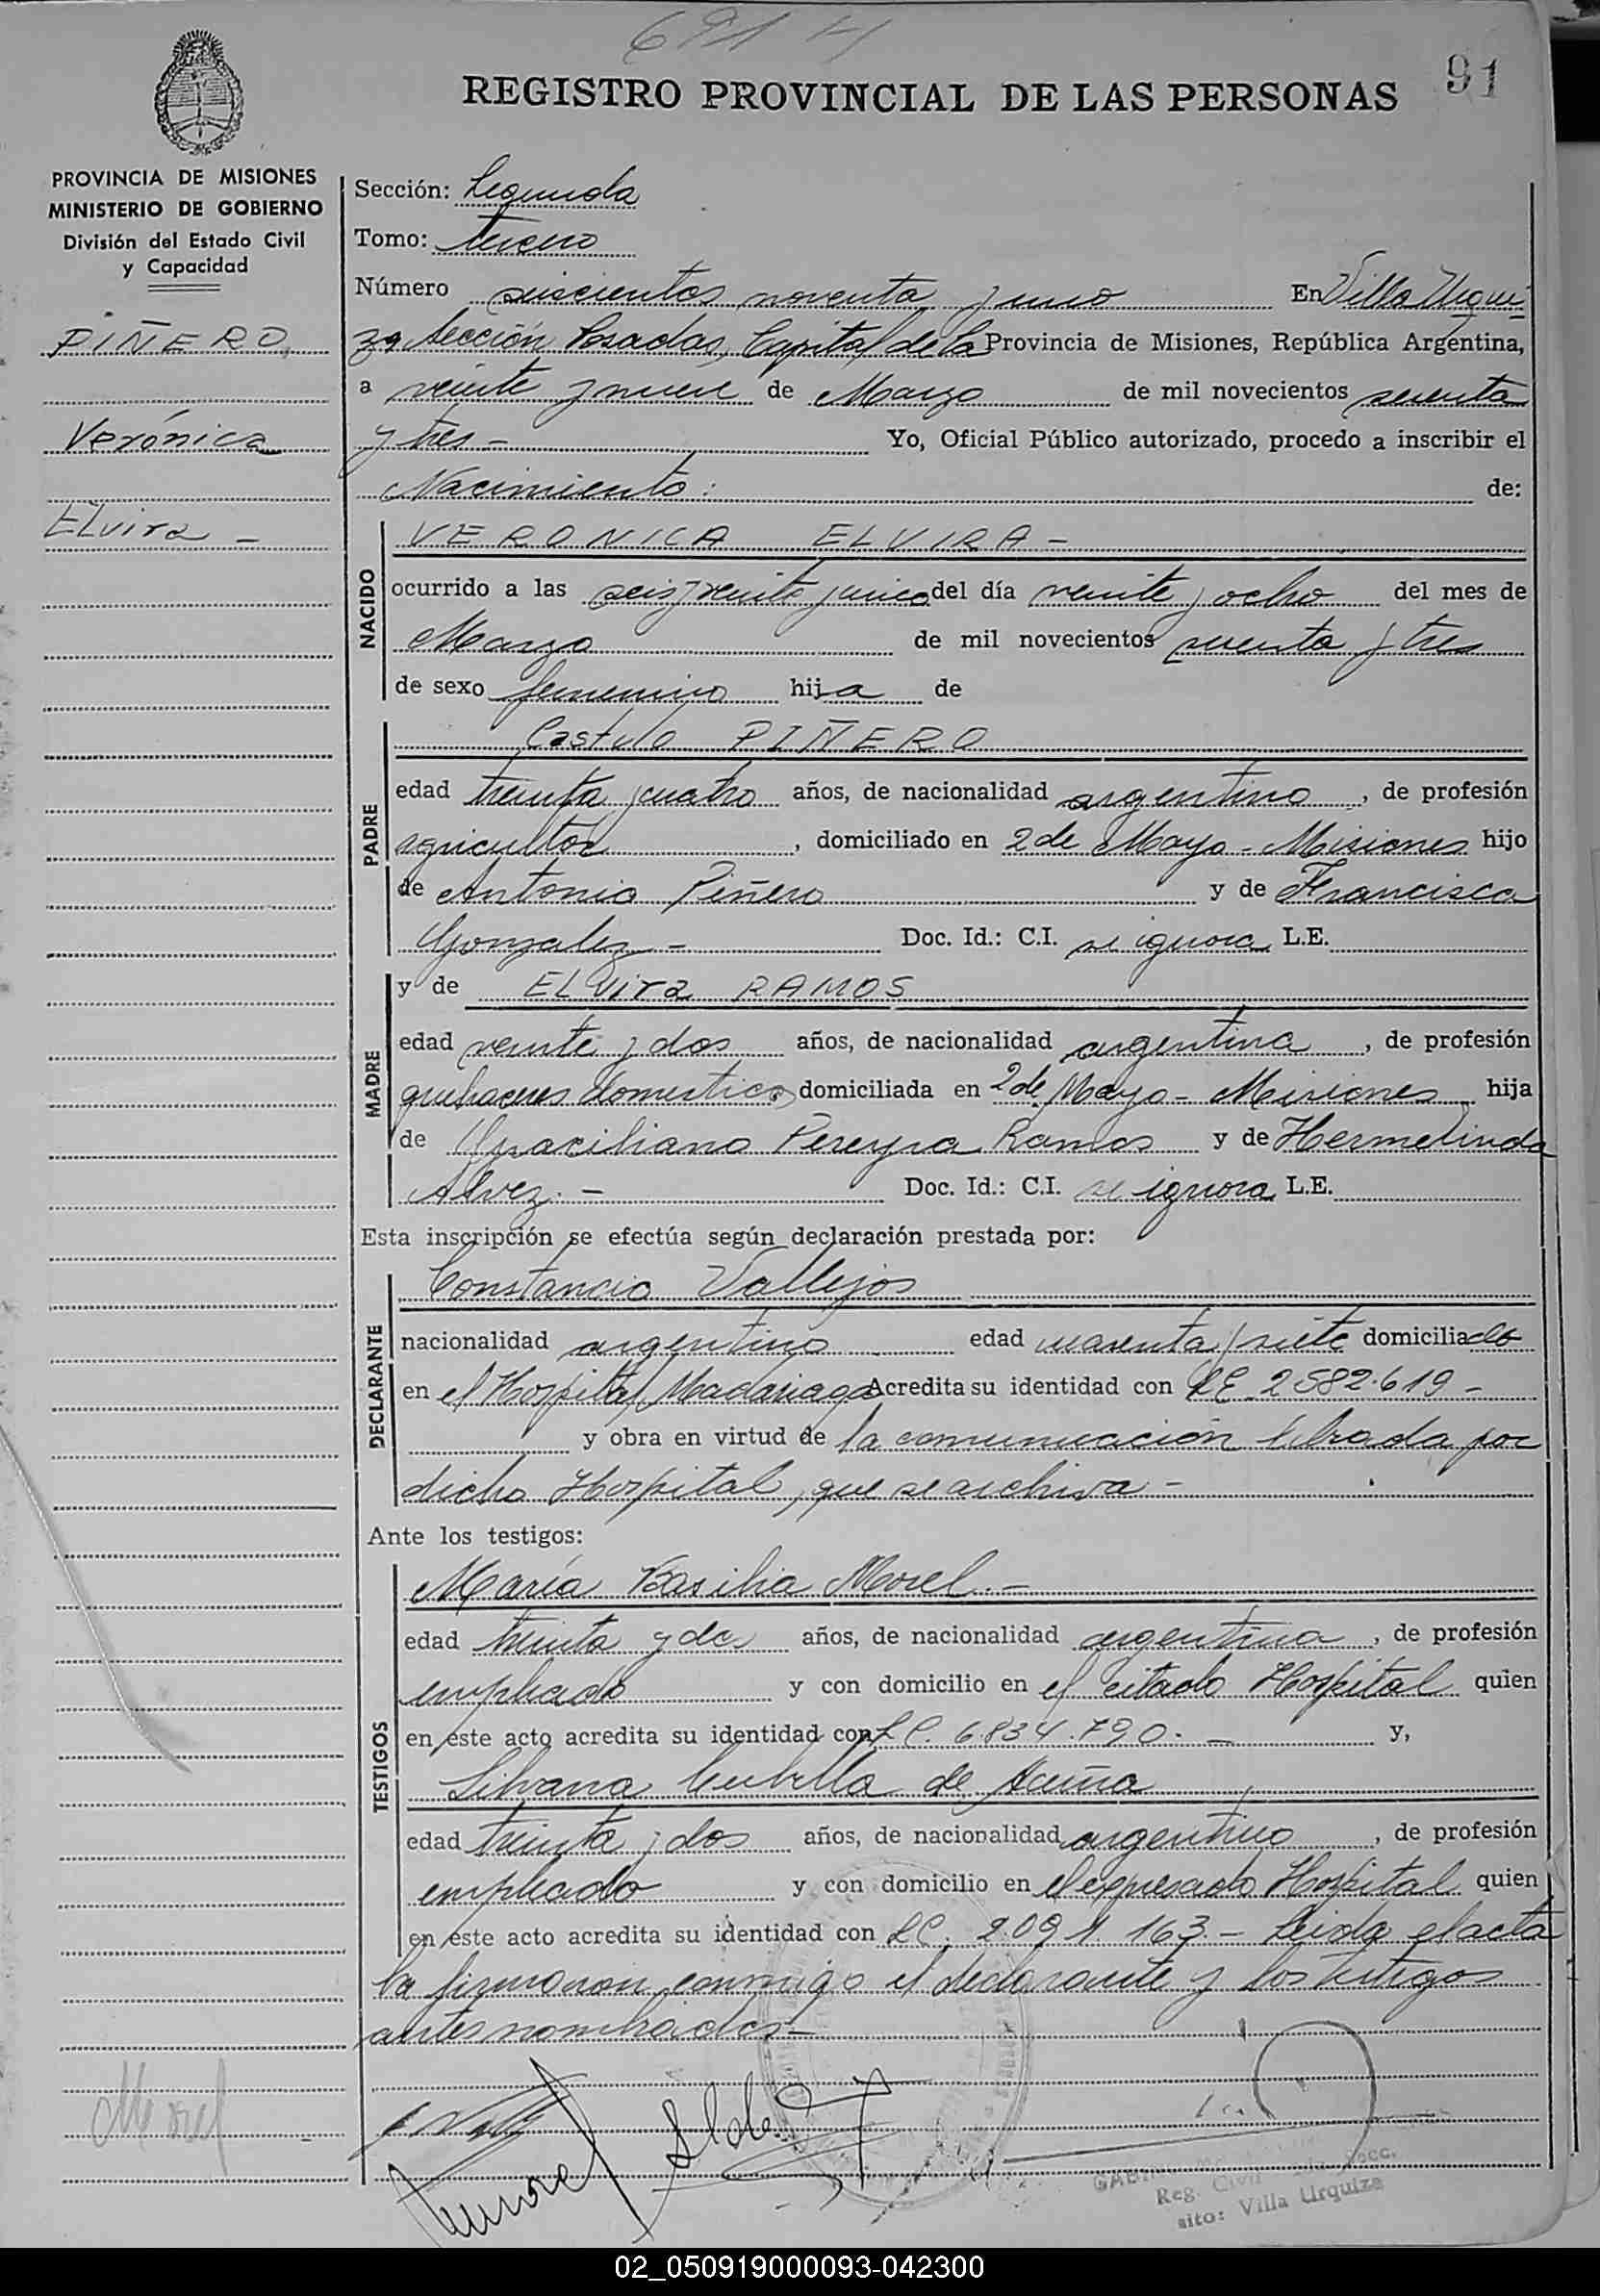 691 H
91
REGISTRO PROVINCIAL DE LAS PERSONAS
PROVINCIA DE MISIONES
MINISTERIO DE GOBIERNO
División del Estado Civil
y Capacidad
PIÑERO,
Verónica
Elvira -
Sección: Segunda
Tomo: tercero
Número seiscientos noventa y uno En Villa Urqui
za Sección Posadas, Capital de la Provincia de Misiones, República Argentina,
a veinte y nueve de Marzo de mil novecientos
y tres - Yo, Oficial Público autorizado, procedo a inscribir el
Nacimiento: de:
NACIDO
VERONICA ELVIRA -
ocurrido a las seis y veinte y cinco del día veinte y ocho del mes de
Marzo de mil novecientos y tres
de sexo femenino hija de
PADRE
Castulo PIÑERO
edad treinta y cuatro años, de nacionalidad argentino, de profesión
agricultor, domiciliado en 2 de Mayo - Misiones hijo
de Antonio Piñero y de Francisca
Gonzalez - Doc. Id.: C.I. se ignora L.E.
MADRE
y de ELVira RAMOS
edad veinte y dos años, de nacionalidad argentina, de profesión
quehaceres domesticos domiciliada en 2 de Mayo - Misiones hija
de Graciliano Pereyra Ramos y de Hermelinda
Alvez. - Doc. Id.: C.I. se ignora L.E.
Esta inscripción se efectúa según declaración prestada por:
DECLARANTE
Constancio Vallejos
nacionalidad argentino edad cuarenta y siete domiciliado
en el Hospital Madariaga Acredita su identidad con LE 2582.619 -
y obra en virtud de la comunicación librada por
dicho Hospital, que se archiva -
Ante los testigos:
TESTIGOS
María Basilia Morel. -
edad treinta y dos años, de nacionalidad argentina, de profesión
empleado y con domicilio en el citado Hospital quien
en este acto acredita su identidad con LC. 6.834.790. - y,
Silvana Cubilla de Acuña
edad treinta y dos años, de nacionalidad argentino, de profesión
empleado y con domicilio en el expresado Hospital quien
en este acto acredita su identidad con LC. 2.091.163. - Leida el acta
la firmaron conmigo el declarante y los testigos
antes nombrados -
Morel
Reg. Civil Secc.
sito: Villa Urquiza
02_050919000093-042300